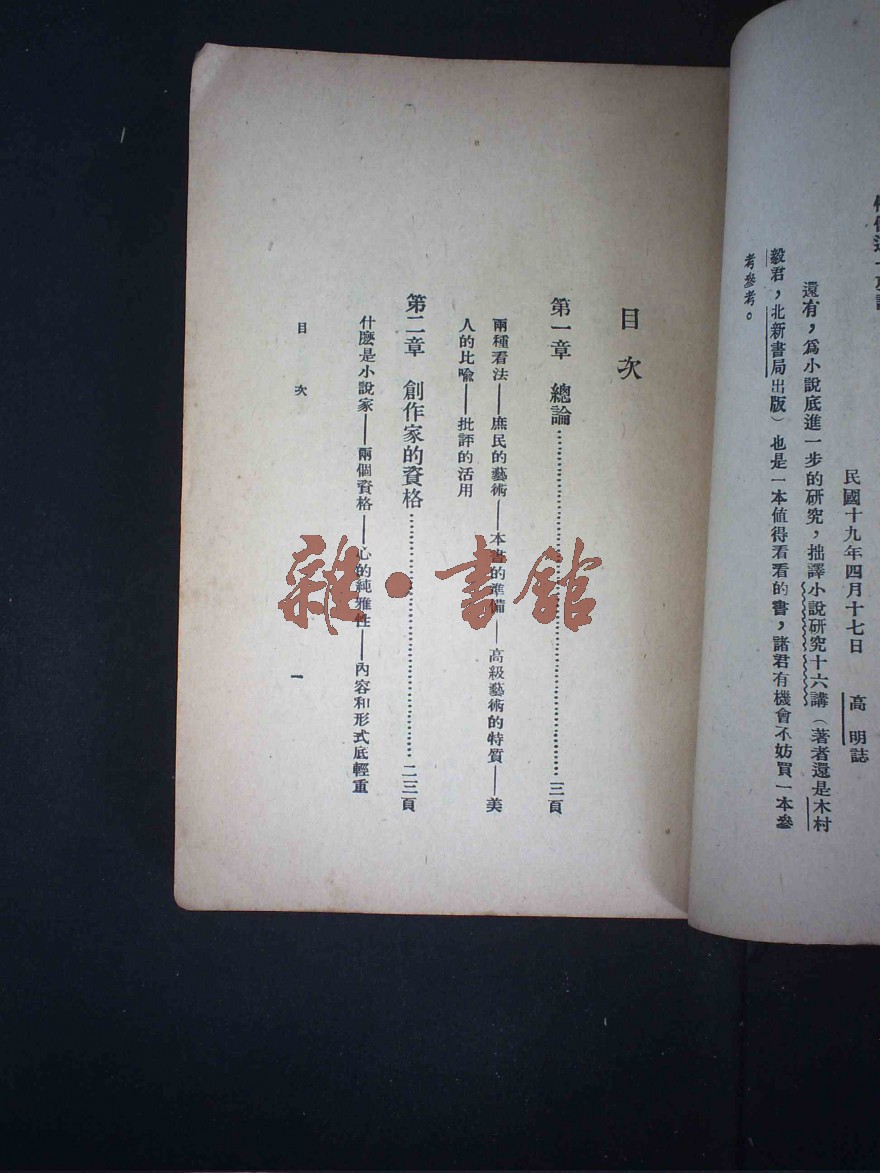 還有，爲小說底進一步的研究，拙譯小說研究十六講（著者還是木村
毅君，北新書局出版）也是一本値得看看的書，諸君有機會不妨買一本參
考參考。
民國十九年四月十七日　高　明誌
目次
第一章　總論……三頁
兩種看法——庶民的藝術——本書的準備——高級藝術的特質——美
人的比喩——批評的活用
第二章　創作家的資格……二三頁
什麽是小說家——兩個資格——心的純雅性——內容和形式底輕重
目　次
一
雜·書館